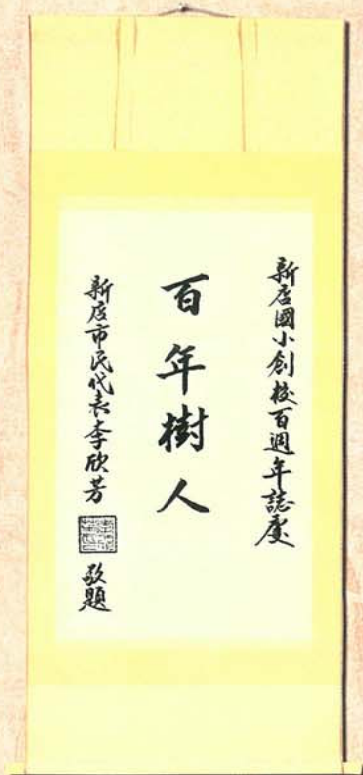 新店國小創校百週年誌慶
百年樹人
新店市民代表李欣芳
敬題